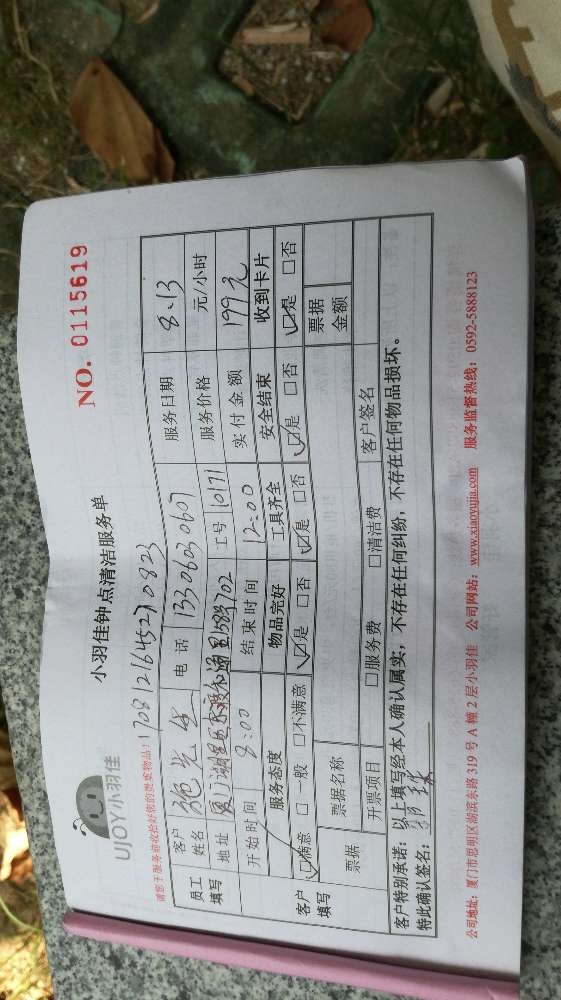 UJOY小羽佳
小羽佳钟点清洁服务单
NO. 0115619
请您于服务前收拾好您的贵重物品!
员工填写 客户姓名 施先生 电话 13306230607 服务日期 8.13
地址 工号 10171 服务价格 元/小时
开始时间 8:00 结束时间 12:00 实付金额 199元
客户填写 服务态度 物品完好 工具齐全 安全结束 收到卡片
☑满意 □一般 □不满意 ☑是 □否 ☑是 □否 ☑是 □否 ☑是 □否
票据 票据名称 票据金额
开票项目 □服务费 □清洁费 客户签名
客户特别承诺: 以上填写经本人确认属实,不存在任何纠纷,不存在任何物品损坏。
特此确认签名:
公司地址: 厦门市思明区湖滨东路319号A幢2层小羽佳 公司网站: www.xiaoyujia.com 服务监督热线: 0592-5888123